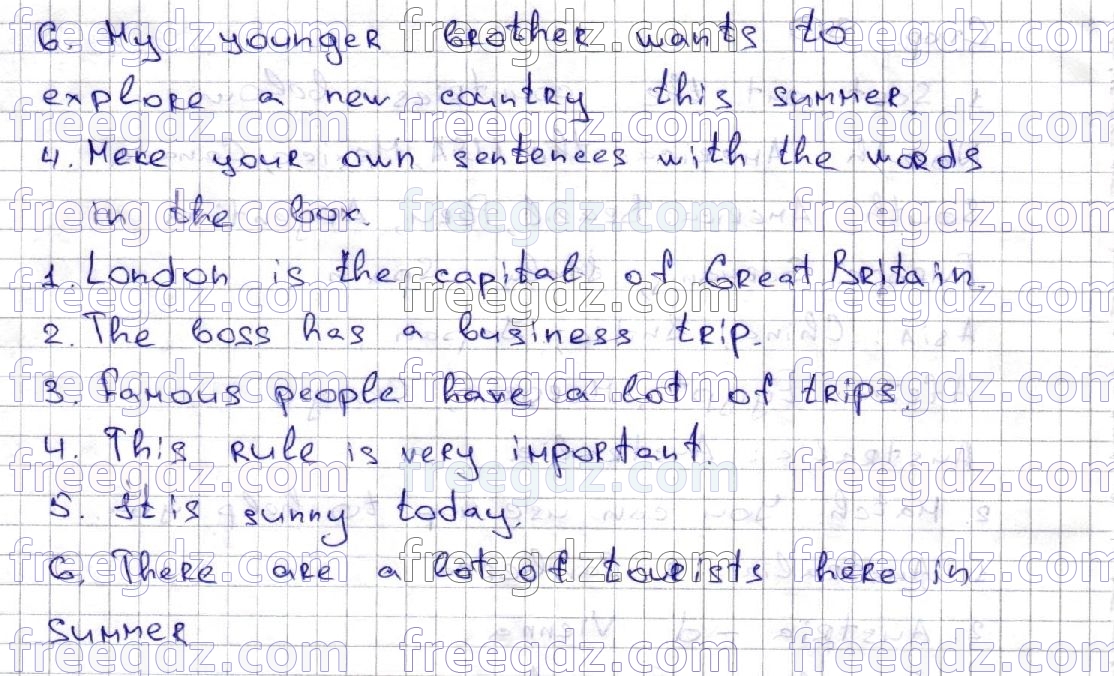 6. My younger brother wants to
explore a new country this summer.
4. Meke your own sentences with the words
in the box.
1. London is the capital of Great Britain.
2. The boss has a business trip.
3. Famous people have a lot of trips.
4. This rule is very important.
5. It is sunny today.
6. There are a lot of tourists here in
summer
freegdz.com